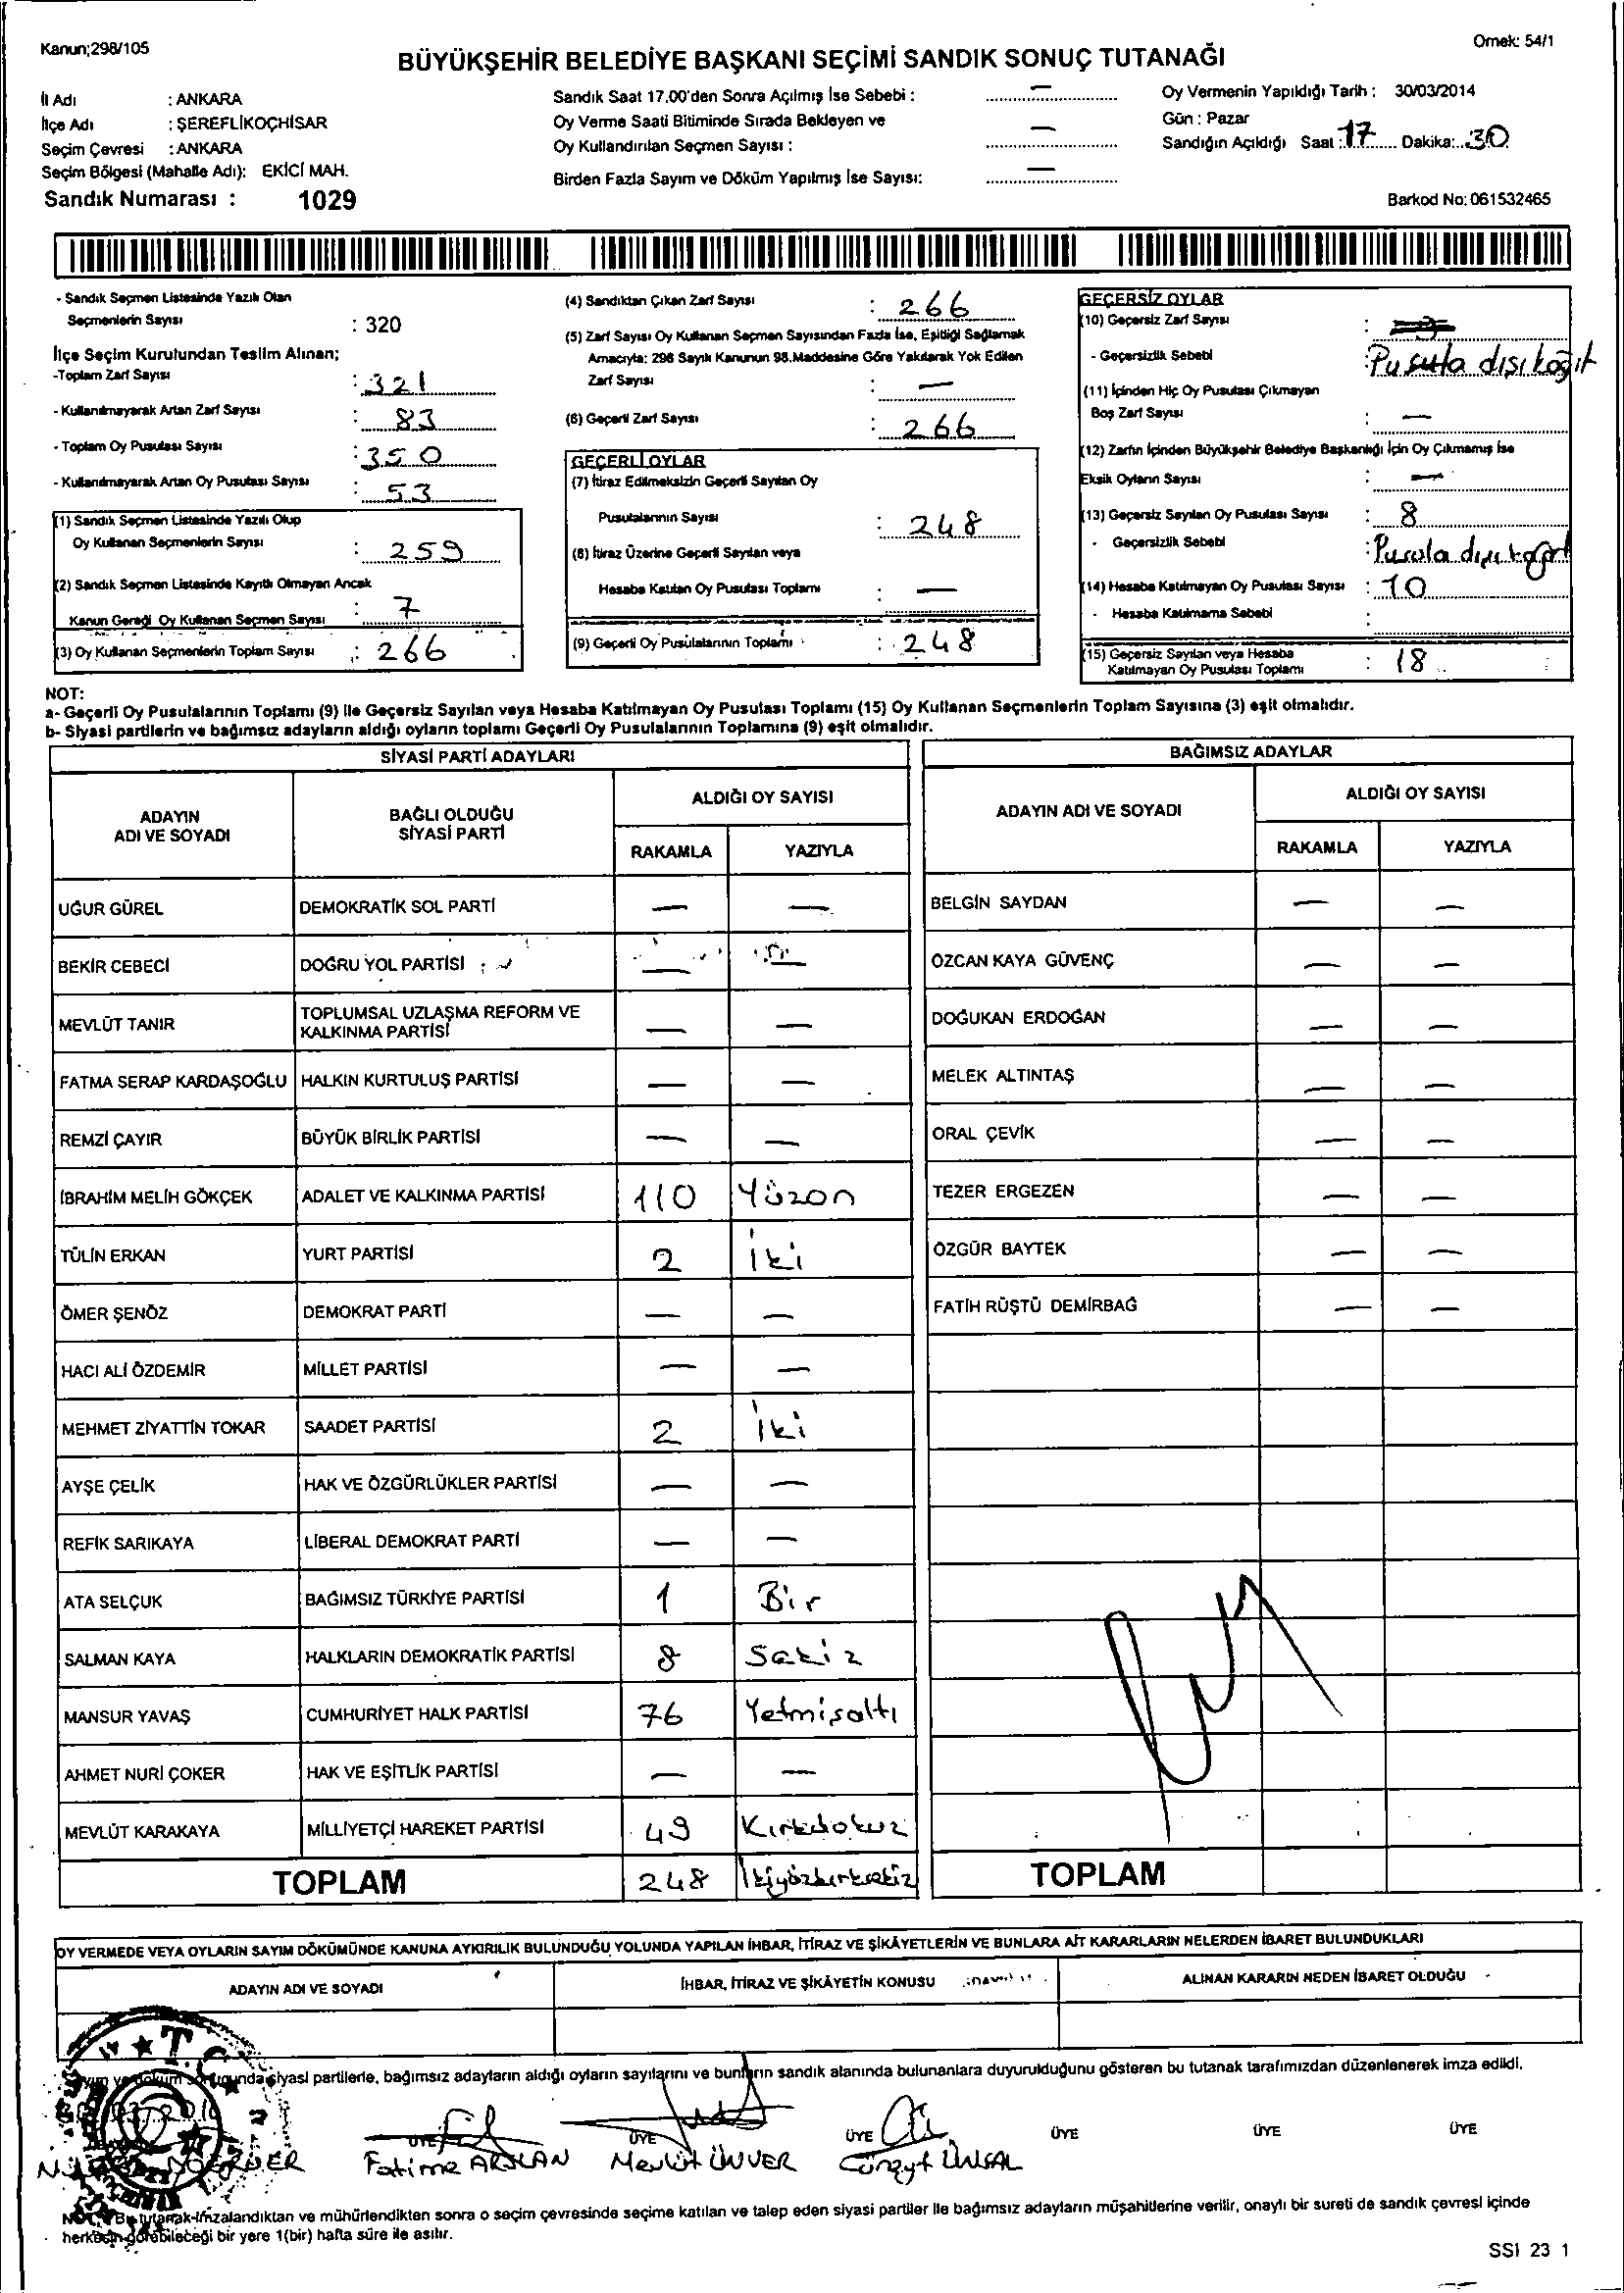 Kanun;298/105
Örnek: 54/1
BÜYÜKŞEHİR BELEDİYE BAŞKANI SEÇİMİ SANDIK SONUÇ TUTANAĞI
İl Adı : ANKARA
İlçe Adı : ŞEREFLİKOÇHİSAR
Seçim Çevresi : ANKARA
Seçim Bölgesi (Mahalle Adı): EKİCİ MAH.
Sandık Numarası : 1029
Sandık Saat 17.00'den Sonra Açılmış İse Sebebi : —
Oy Verme Saati Bitiminde Sırada Bekleyen ve
Oy Kullandırılan Seçmen Sayısı : —
Birden Fazla Sayım ve Döküm Yapılmış İse Sayısı: —
Oy Vermenin Yapıldığı Tarih : 30/03/2014
Gün : Pazar
Sandığın Açıldığı Saat : 17 Dakika: 30
Barkod No: 061532465
- Sandık Seçmen Listesinde Yazılı Olan
Seçmenlerin Sayısı : 320
İlçe Seçim Kurulundan Teslim Alınan;
-Toplam Zarf Sayısı : 321
- Kullanılmayarak Artan Zarf Sayısı : 83
- Toplam Oy Pusulası Sayısı : 350
- Kullanılmayarak Artan Oy Pusulası Sayısı : 53
(1) Sandık Seçmen Listesinde Yazılı Olup
Oy Kullanan Seçmenlerin Sayısı : 259
(2) Sandık Seçmen Listesinde Kayıtlı Olmayan Ancak
Kanun Gereği Oy Kullanan Seçmen Sayısı : 7
(3) Oy Kullanan Seçmenlerin Toplam Sayısı : 266
(4) Sandıktan Çıkan Zarf Sayısı : 266
(5) Zarf Sayısı Oy Kullanan Seçmen Sayısından Fazla İse, Eşitliği Sağlamak
Amacıyla; 298 Sayılı Kanunun 98.Maddesine Göre Yakılarak Yok Edilen
Zarf Sayısı : —
(6) Geçerli Zarf Sayısı : 266
GEÇERLİ OYLAR
(7) İtiraz Edilmeksizin Geçerli Sayılan Oy
Pusulalarının Sayısı : 248
(8) İtiraz Üzerine Geçerli Sayılan veya
Hesaba Katılan Oy Pusulası Toplamı : —
(9) Geçerli Oy Pusulalarının Toplamı : 248
GEÇERSİZ OYLAR
(10) Geçersiz Zarf Sayısı :
- Geçersizlik Sebebi : Pusula dışı kağıt
(11) İçinden Hiç Oy Pusulası Çıkmayan
Boş Zarf Sayısı : —
(12) Zarfın İçinden Büyükşehir Belediye Başkanlığı İçin Oy Çıkmamış İse
Eksik Oyların Sayısı : —
(13) Geçersiz Sayılan Oy Pusulası Sayısı : 8
- Geçersizlik Sebebi : Pusula dışı kağıt
(14) Hesaba Katılmayan Oy Pusulası Sayısı : 10
- Hesaba Katılmama Sebebi :
(15) Geçersiz Sayılan veya Hesaba
Katılmayan Oy Pusulası Toplamı : 18
NOT:
a- Geçerli Oy Pusulalarının Toplamı (9) ile Geçersiz Sayılan veya Hesaba Katılmayan Oy Pusulası Toplamı (15) Oy Kullanan Seçmenlerin Toplam Sayısına (3) eşit olmalıdır.
b- Siyasi partilerin ve bağımsız adayların aldığı oyların toplamı Geçerli Oy Pusulalarının Toplamına (9) eşit olmalıdır.
SİYASİ PARTİ ADAYLARI
ADAYIN ADI VE SOYADI
BAĞLI OLDUĞU SİYASİ PARTİ
ALDIĞI OY SAYISI
RAKAMLA YAZIYLA
UĞUR GÜREL DEMOKRATİK SOL PARTİ — —
BEKİR CEBECİ DOĞRU YOL PARTİSİ — —
MEVLÜT TANIR TOPLUMSAL UZLAŞMA REFORM VE KALKINMA PARTİSİ — —
FATMA SERAP KARDAŞOĞLU HALKIN KURTULUŞ PARTİSİ — —
REMZİ ÇAYIR BÜYÜK BİRLİK PARTİSİ — —
İBRAHİM MELİH GÖKÇEK ADALET VE KALKINMA PARTİSİ 110 Yüzon
TÜLİN ERKAN YURT PARTİSİ 2 İki
ÖMER ŞENÖZ DEMOKRAT PARTİ — —
HACI ALİ ÖZDEMİR MİLLET PARTİSİ — —
MEHMET ZİYATTİN TOKAR SAADET PARTİSİ 2 İki
AYŞE ÇELİK HAK VE ÖZGÜRLÜKLER PARTİSİ — —
REFİK SARIKAYA LİBERAL DEMOKRAT PARTİ — —
ATA SELÇUK BAĞIMSIZ TÜRKİYE PARTİSİ 1 Bir
SALMAN KAYA HALKLARIN DEMOKRATİK PARTİSİ 8 Sekiz
MANSUR YAVAŞ CUMHURİYET HALK PARTİSİ 76 Yetmişaltı
AHMET NURİ ÇOKER HAK VE EŞİTLİK PARTİSİ — —
MEVLÜT KARAKAYA MİLLİYETÇİ HAREKET PARTİSİ 49 Kırkdokuz
TOPLAM 248 İkiyüzkırksekiz
BAĞIMSIZ ADAYLAR
ADAYIN ADI VE SOYADI
ALDIĞI OY SAYISI
RAKAMLA YAZIYLA
BELGİN SAYDAN — —
ÖZCAN KAYA GÜVENÇ — —
DOĞUKAN ERDOĞAN — —
MELEK ALTINTAŞ — —
ORAL ÇEVİK — —
TEZER ERGEZEN — —
ÖZGÜR BAYTEK — —
FATİH RÜŞTÜ DEMİRBAĞ — —
TOPLAM
OY VERMEDE VEYA OYLARIN SAYIM DÖKÜMÜNDE KANUNA AYKIRILIK BULUNDUĞU YOLUNDA YAPILAN İHBAR, İTİRAZ VE ŞİKÂYETLERİN VE BUNLARA AİT KARARLARIN NELERDEN İBARET BULUNDUKLARI
ADAYIN ADI VE SOYADI
İHBAR, İTİRAZ VE ŞİKÂYETİN KONUSU
ALINAN KARARIN NEDEN İBARET OLDUĞU
T.C.
siyasi partilerle, bağımsız adayların aldığı oyların sayılarını ve bunların sandık alanında bulunanlara duyurulduğunu gösteren bu tutanak tarafımızdan düzenlenerek imza edildi.
ÜYE ÜYE ÜYE ÜYE ÜYE ÜYE
Fatime ARSLAN Mevlüt ÜNVER Cüneyt ÜNSAL
NOT: Bu tutanak imzalandıktan ve mühürlendikten sonra o seçim çevresinde seçime katılan ve talep eden siyasi partiler ile bağımsız adayların müşahitlerine verilir, onaylı bir sureti de sandık çevresi içinde
herkesin görebileceği bir yere 1(bir) hafta süre ile asılır.
SSI 23 1